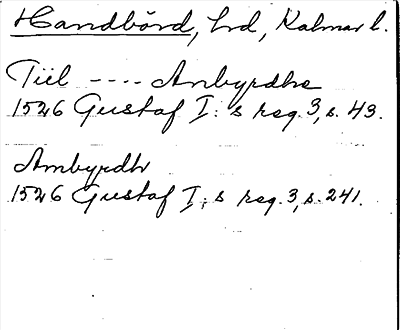 Handbörd, hd, Kalmar l.
Tiil ---- Anbyrdhe
1526 Gustaf I:s reg. 3, s. 43.
Ambyrdh
1526 Gustaf I:s reg. 3, s. 241.